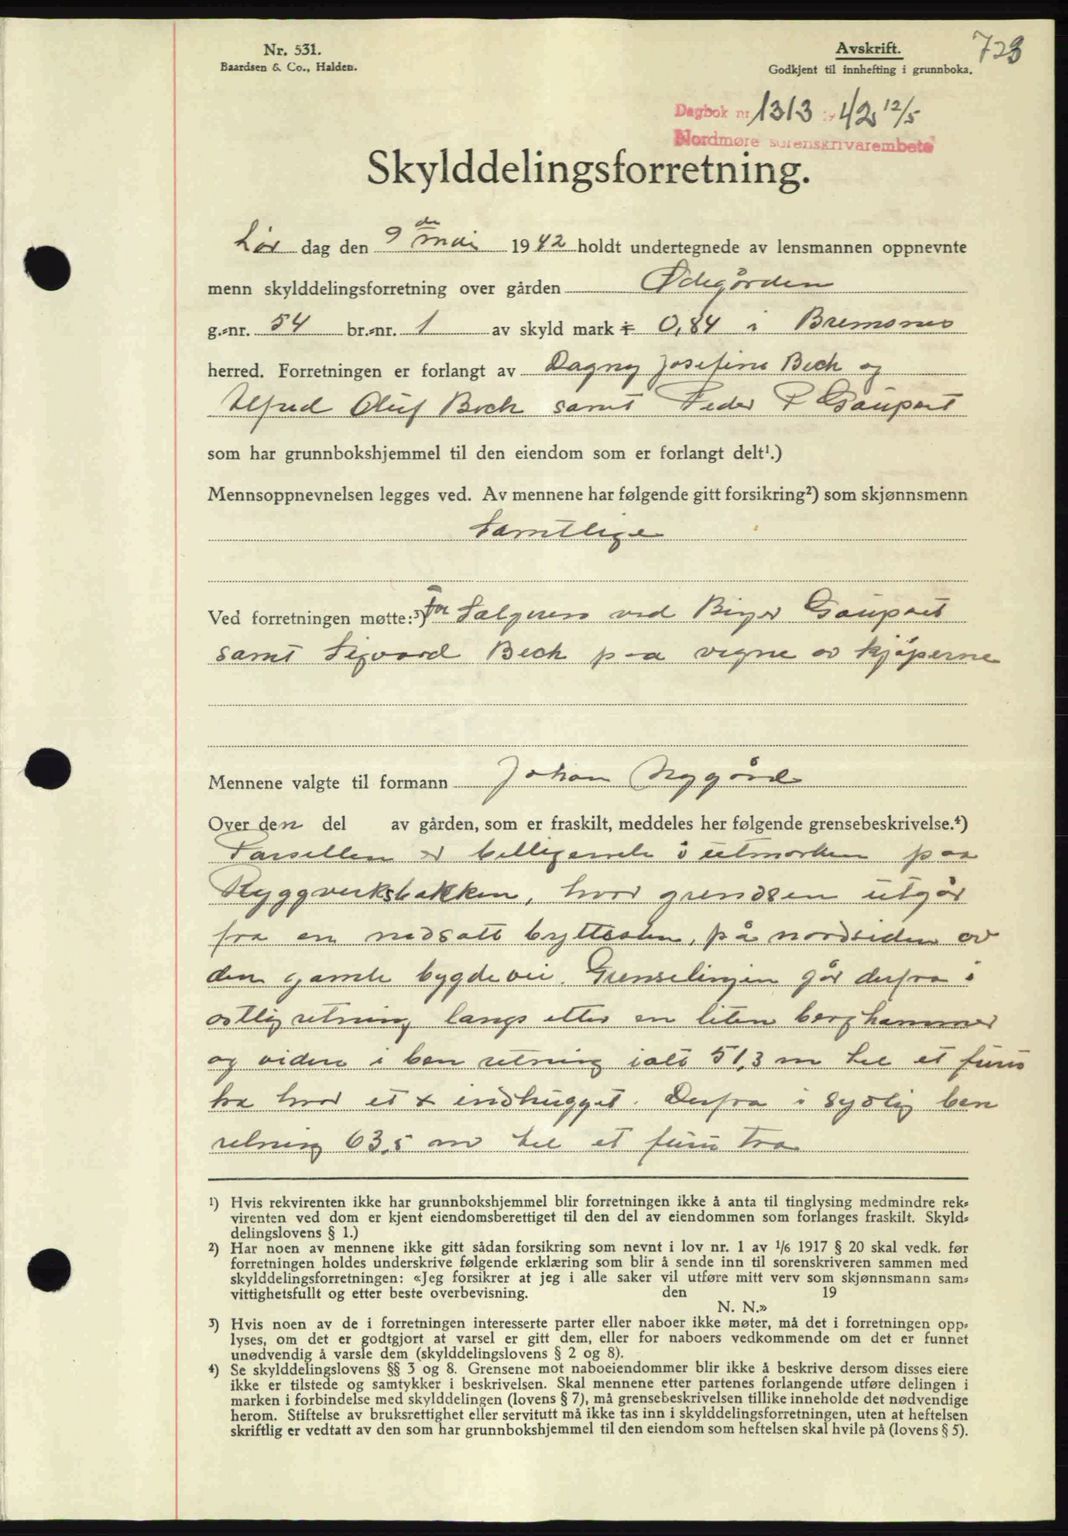 Nr. 531.
Baardsen & Co., Halden.
Avskrift.
Godkjent til innhefting i grunnboka.
723
Dagbok nr 1313 42 12/5
Nordmøre sorenskrivarembete
Skylddelingsforretning.
Lør dag den 9 de mai 1942 holdt undertegnede av lensmannen oppnevnte
menn skylddelingsforretning over gården Ødegården
g.-nr. 54 br.-nr. 1 av skyld mark 0,84 i Bremsnes
herred. Forretningen er forlangt av Dagny Josefine Bech og
Alfred Oluf Bech samt Peder P Gaupset
som har grunnbokshjemmel til den eiendom som er forlangt delt¹.)
Mennsoppnevnelsen legges ved. Av mennene har følgende gitt forsikring²) som skjønnsmenn
Samtlige
Ved forretningen møtte:³) For Selgeren ved Birger Gaupset
samt Sigvard Bech paa vegne av kjøperne
Mennene valgte til formann Johan Nygård
Over den del av gården, som er fraskilt, meddeles her følgende grensebeskrivelse.⁴)
Parsellen er beliggende i utmarken paa
Ryggverksbakken, hvor grendsen utgår
fra en nedsatt byttesten, på nordsiden av
den gamle bygdevei. Grenselinjen går derfra i
østlig retning langs etter en liten berghammer
og videre i ben retning ialt 51,3 m til et furu
tre hvor et x indhugget. Derfra i sydlig ben
retning 63,5 m til et furu tre
¹) Hvis rekvirenten ikke har grunnbokshjemmel blir forretningen ikke å anta til tinglysing medmindre rek-
virenten ved dom er kjent eiendomsberettiget til den del av eiendommen som forlanges fraskilt. Skyld-
delingslovens § 1.)
²) Har noen av mennene ikke gitt sådan forsikring som nevnt i lov nr. 1 av 1/6 1917 § 20 skal vedk. før
forretningen holdes underskrive følgende erklæring som blir å sende inn til sorenskriveren sammen med
skylddelingsforretningen: «Jeg forsikrer at jeg i alle saker vil utføre mitt verv som skjønnsmann sam-
vittighetsfullt og etter beste overbevisning. den 19
N. N.»
³) Hvis noen av de i forretningen interesserte parter eller naboer ikke møter, må det i forretningen opp-
lyses, om det er godtgjort at varsel er gitt dem, eller for naboers vedkommende om det er funnet
unødvendig å varsle dem (skylddelingslovens § 2 og 8).
⁴) Se skylddelingslovens §§ 3 og 8. Grensene mot naboeiendommer blir ikke å beskrive dersom disses eiere
ikke er tilstede og samtykker i beskrivelsen. Skal mennene etter partenes forlangende utføre delingen i
marken i forbindelse med skylddelingen (lovens § 7), må grensebeskrivelsen tillike inneholde det nødvendige
herom. Stiftelse av bruksrettighet eller servitutt må ikke tas inn i skylddelingsforretningen, uten at heftelsen
skriftlig er vedtatt av den som har grunnbokshjemmel til den eiendom som heftelsen skal hvile på (lovens § 5).